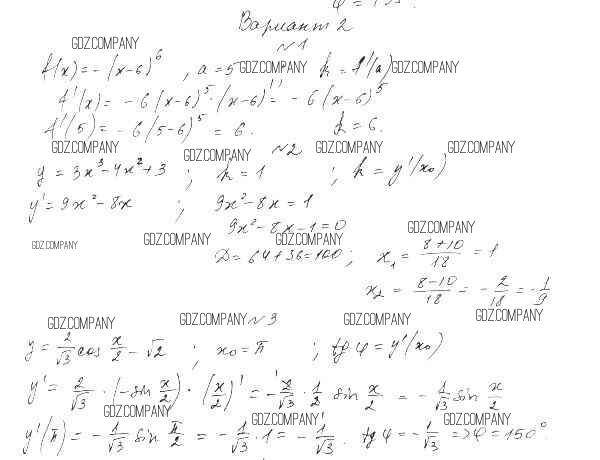 Вариант 2
GDZ.COMPANY №1
f(x) = -(x-6)⁶ , a = 5 GDZ.COMPANY k = f'(a) GDZ.COMPANY
f'(x) = -6(x-6)⁵·(x-6)' = -6(x-6)⁵
f'(5) = -6(5-6)⁵ = 6. k = 6.
GDZ.COMPANY GDZ.COMPANY №2 GDZ.COMPANY GDZ.COMPANY
y = 3x³-4x²+3 ; k = 1 ; k = y'(x₀)
y' = 9x²-8x ; 9x²-8x = 1
9x²-8x-1=0
GDZ.COMPANY GDZ.COMPANY GDZ.COMPANY GDZ.COMPANY
D = 64+36=100 ; x₁ = (8+10)/18 = 1
x₂ = (8-10)/18 = -2/18 = -1/9
GDZ.COMPANY GDZ.COMPANY №3 GDZ.COMPANY GDZ.COMPANY
y = 2/√3 cos x/2 - √2 ; x₀ = π ; tg φ = y'(x₀)
y' = 2/√3 · (-sin x/2) · (x/2)' = -2/√3 · 1/2 sin x/2 = -1/√3 sin x/2
GDZ.COMPANY GDZ.COMPANY GDZ.COMPANY
y'(π) = -1/√3 sin π/2 = -1/√3 · 1 = -1/√3. tg φ = -1/√3 => φ = 150°.